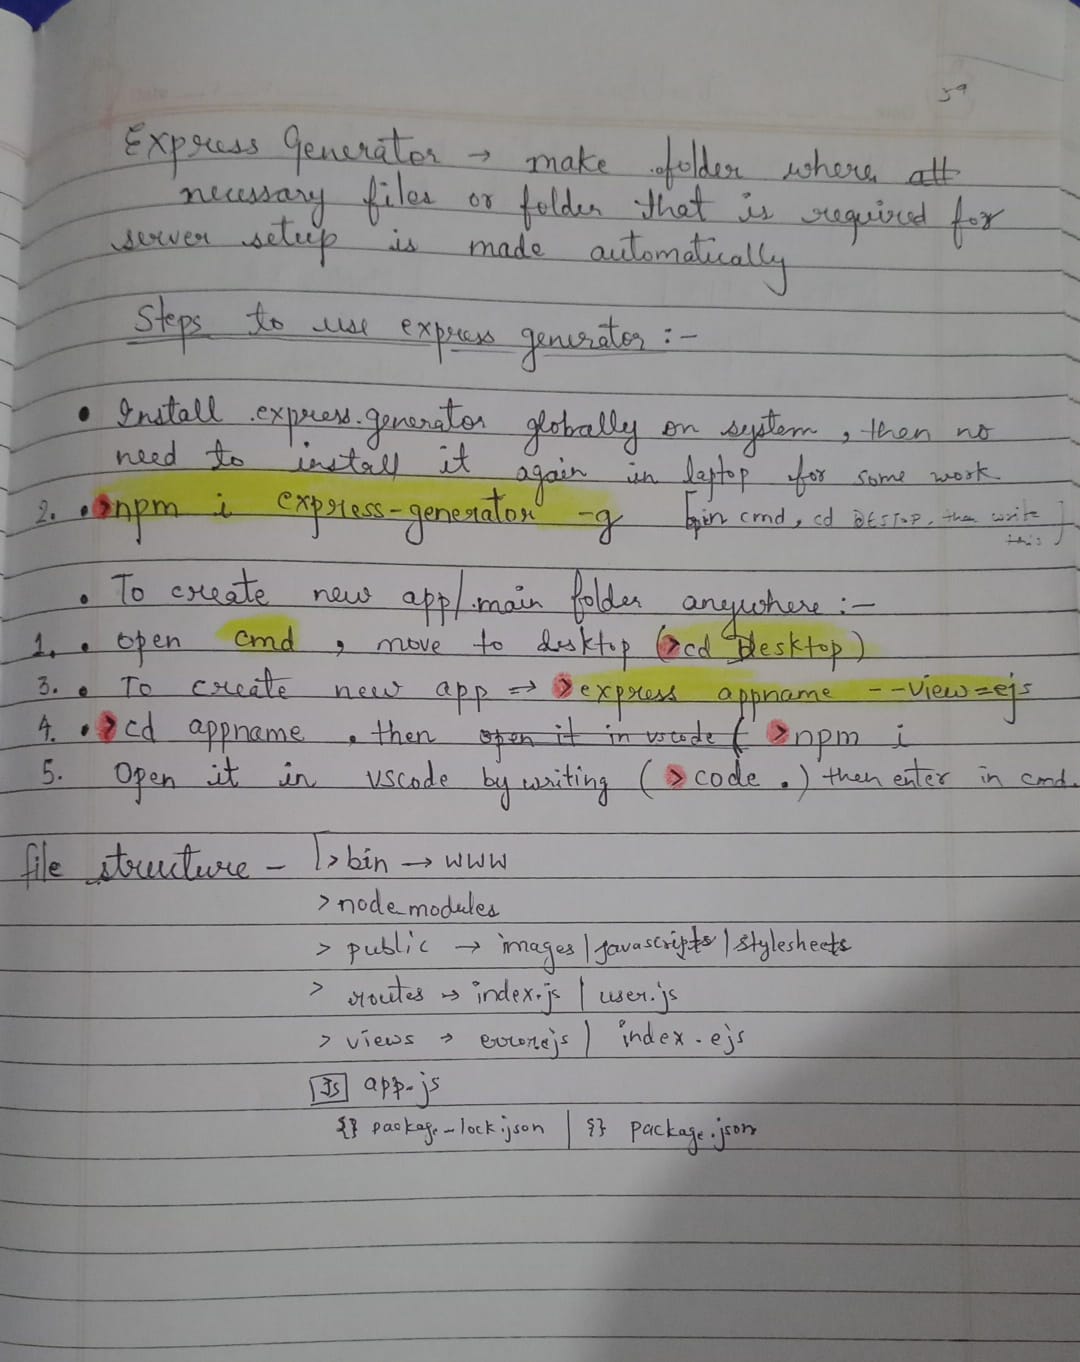 59
Express Generator → make folder where all
necessary files or folder that is required for
server setup is made automatically
Steps to use express generator :-
• Install express.generator globally on system, then no
need to install it again in laptop for some work
2. • >npm i express-generator -g [in cmd, cd DESTOP, then write this]
• To create new app/main folder anywhere :-
1. • open cmd, move to desktop (>cd Desktop)
3. • To create new app => >express appname --view=ejs
4. • > cd appname, then open it in vscode ( >npm i
5. Open it in vscode by writing ( > code .) then enter in cmd.
file structure - > bin → www
> node_modules
> public → images | javascripts | stylesheets
> routes → index.js | user.js
> views → error.ejs | index.ejs
JS app.js
{} package-lock.json | {} package.json